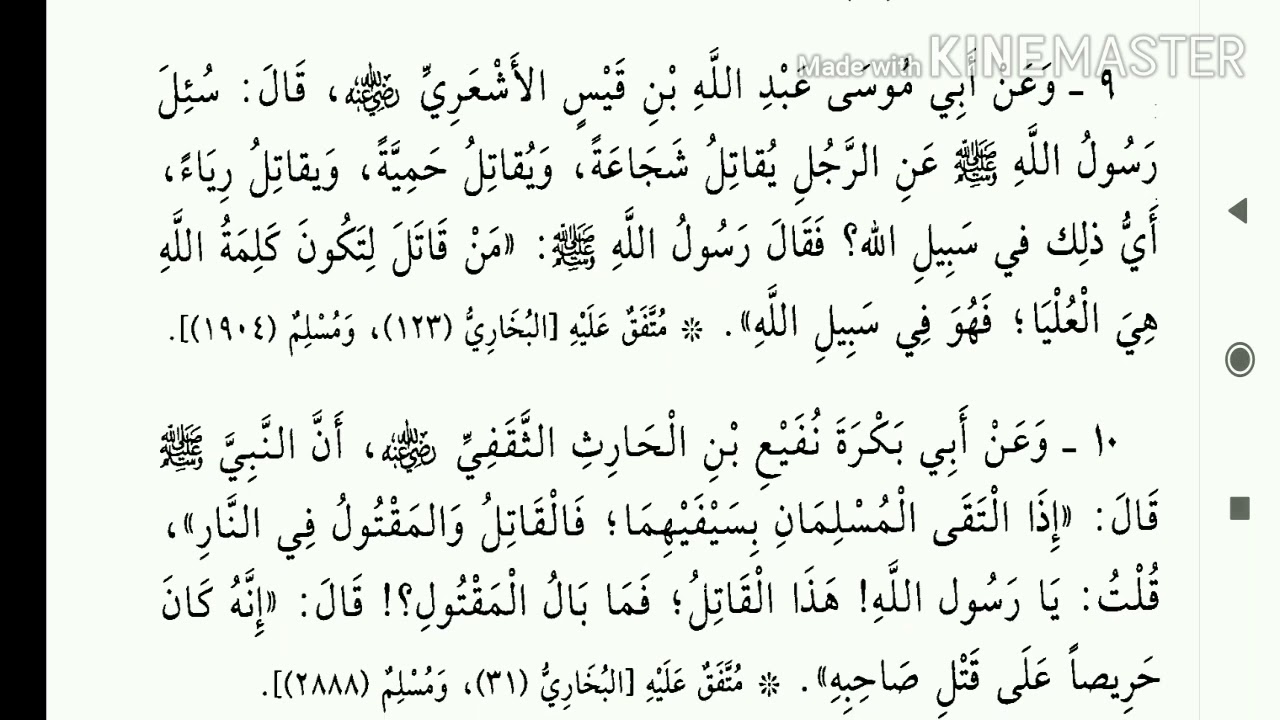 Made with KINEMASTER
٩ ـ وَعَنْ أَبِي مُوسَى عَبْدِ اللَّهِ بْنِ قَيْسٍ الأَشْعَرِيِّ رضي الله عنه، قَالَ: سُئِلَ
رَسُولُ اللَّهِ ﷺ عَنِ الرَّجُلِ يُقاتِلُ شَجَاعَةً، وَيُقاتِلُ حَمِيَّةً، وَيقاتِلُ رِيَاءً،
أَيُّ ذلِك في سَبِيلِ الله؟ فَقَالَ رَسُولُ اللَّهِ ﷺ: «مَنْ قَاتَلَ لِتَكُونَ كَلِمَةُ اللَّهِ
هِيَ الْعُلْيَا؛ فَهُوَ فِي سَبِيلِ اللَّهِ». * مُتَّفَقٌ عَلَيْهِ [البُخَارِيُّ (١٢٣)، وَمُسْلِمٌ (١٩٠٤)].
١٠ ـ وَعَنْ أَبِي بَكْرَةَ نُفَيْعِ بْنِ الْحَارِثِ الثَّقَفِيِّ رضي الله عنه، أَنَّ النَّبِيَّ ﷺ
قَالَ: «إِذَا الْتَقَى الْمُسْلِمَانِ بِسَيْفَيْهِمَا؛ فَالْقَاتِلُ وَالمَقْتُولُ فِي النَّارِ»،
قُلْتُ: يَا رَسُول اللَّهِ! هَذَا الْقَاتِلُ؛ فَمَا بَالُ الْمَقْتُولِ؟! قَالَ: «إِنَّهُ كَانَ
حَرِيصاً عَلَى قَتْلِ صَاحِبِهِ». * مُتَّفَقٌ عَلَيْهِ [البُخَارِيُّ (٣١)، وَمُسْلِمٌ (٢٨٨٨)].